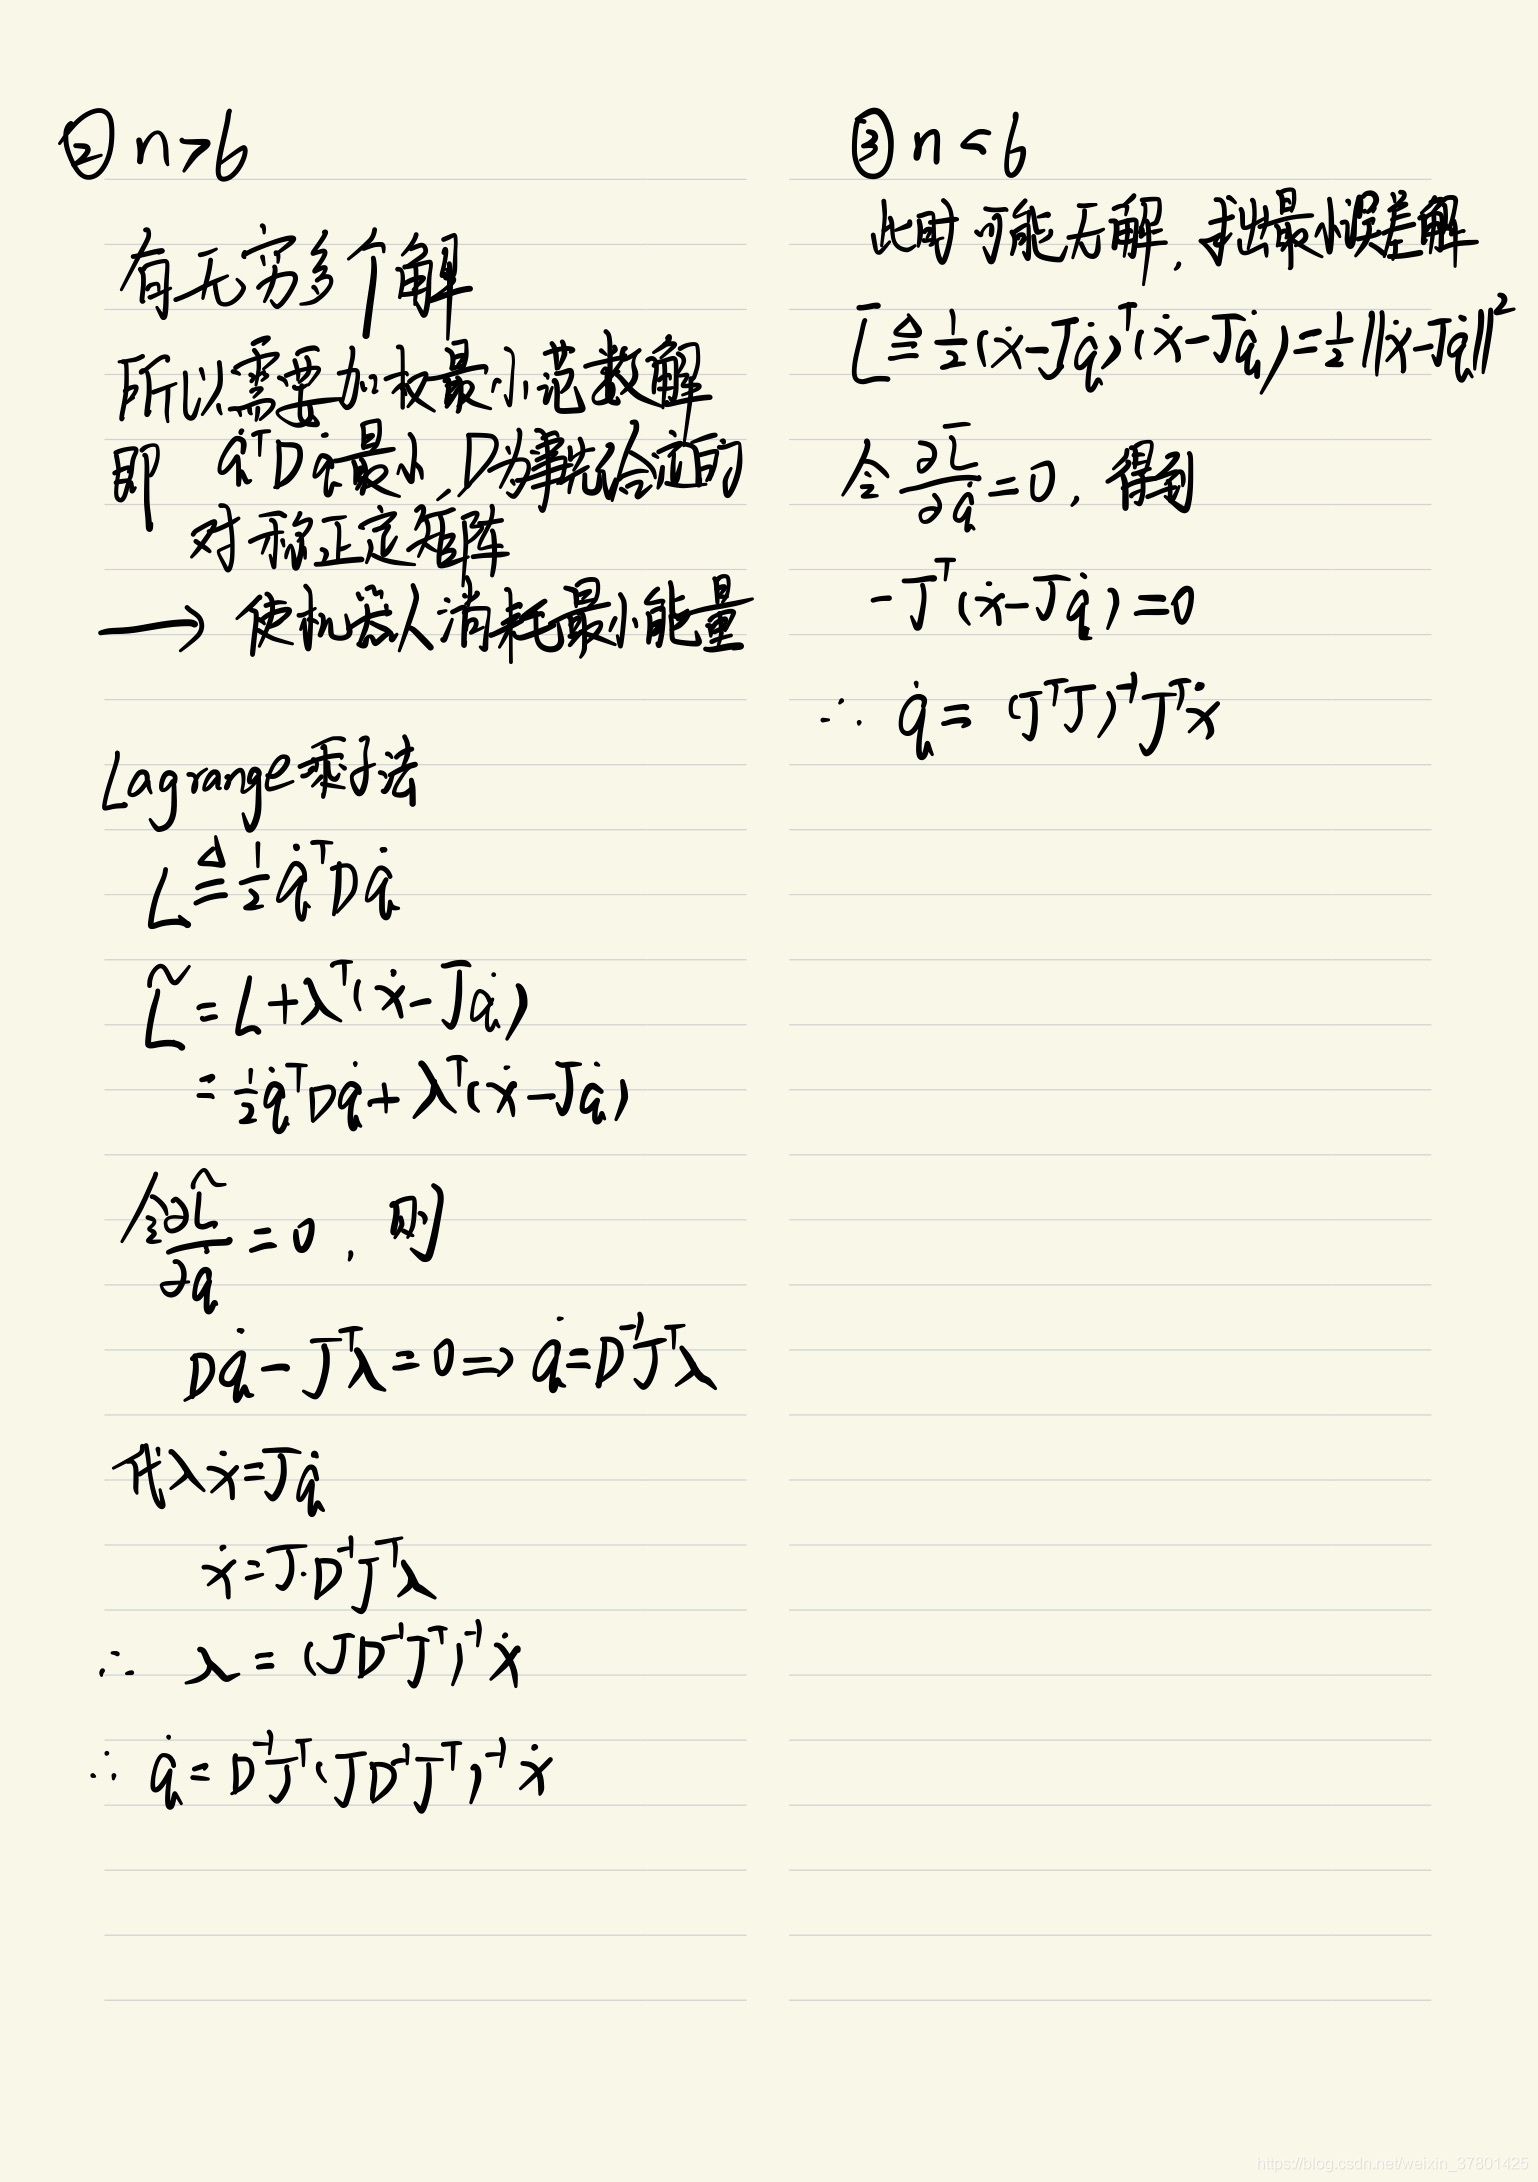 ② n>6
有无穷多个解
所以需要加权最小范数解
即 q̇ᵀDq̇最小, D为事先给定的
对称正定矩阵
→ 使机器人消耗最小能量
Lagrange乘子法
L ≜ ½ q̇ᵀDq̇
L̃ = L + λᵀ(ẋ - Jq̇)
= ½ q̇ᵀDq̇ + λᵀ(ẋ - Jq̇)
令 ∂L̃/∂q̇ = 0, 则
Dq̇ - Jᵀλ = 0 => q̇ = D⁻¹Jᵀλ
代入 ẋ = Jq̇
ẋ = J·D⁻¹Jᵀλ
∴ λ = (JD⁻¹Jᵀ)⁻¹ẋ
∴ q̇ = D⁻¹Jᵀ(JD⁻¹Jᵀ)⁻¹ẋ
③ n<6
此时可能无解, 求出最小误差解
L̅ ≜ ½(ẋ - Jq̇)ᵀ(ẋ - Jq̇) = ½||ẋ - Jq̇||²
令 ∂L̅/∂q̇ = 0, 得到
-Jᵀ(ẋ - Jq̇) = 0
∴ q̇ = (JᵀJ)⁻¹Jᵀẋ
https://blog.csdn.net/weixin_37801425